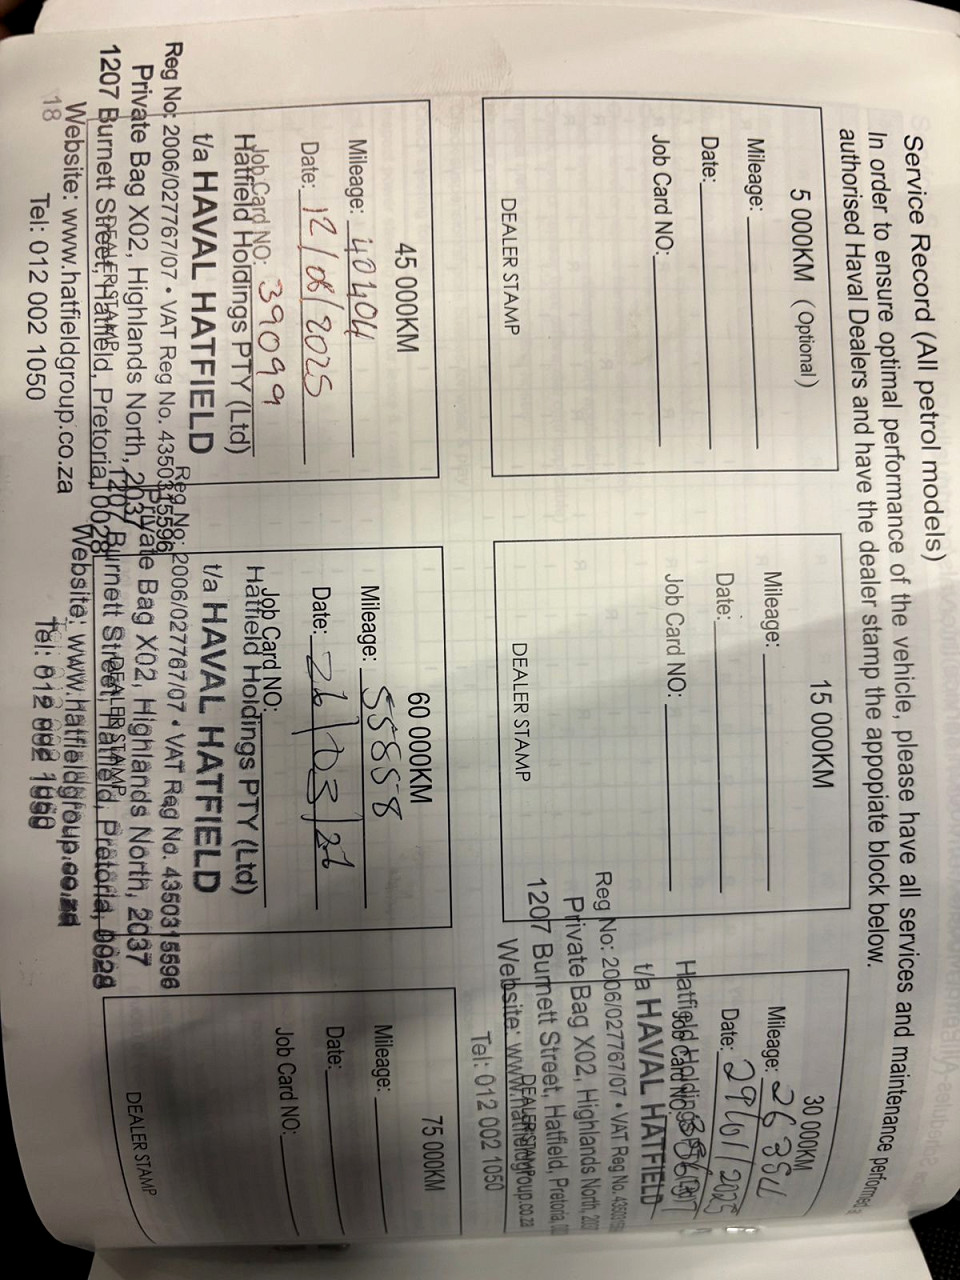 Service Record (All petrol models)
In order to ensure optimal performance of the vehicle, please have all services and maintenance performed
authorised Haval Dealers and have the dealer stamp the appopiate block below.
5 000KM (Optional)
Mileage:
Date:
Job Card NO:
DEALER STAMP
15 000KM
Mileage:
Date:
Job Card NO:
DEALER STAMP
30 000KM
Mileage:
Date: 29/01/2025
Job Card NO:
Hatfield Holdings
t/a HAVAL HATFIELD
Reg No: 2006/027767/07 • VAT Reg No.
Private Bag X02, Highlands North,
1207 Burnett Street, Hatfield, Pretoria,
DEALER STAMP
Website: www.hatfieldgroup.co.za
Tel: 012 002 1050
45 000KM
Mileage: 40404
Date: 12/08/2025
Job Card NO: 39099
Hatfield Holdings PTY (Ltd)
t/a HAVAL HATFIELD
Reg No: 2006/027767/07 • VAT Reg No. 4350315596
Private Bag X02, Highlands North, 2037
1207 Burnett Street, Hatfield, Pretoria, 0028
DEALER STAMP
Website: www.hatfieldgroup.co.za
Tel: 012 002 1050
60 000KM
Mileage: 55858
Date: 26/03/26
Job Card NO:
Hatfield Holdings PTY (Ltd)
t/a HAVAL HATFIELD
Reg No: 2006/027767/07 • VAT Reg No. 4350315596
Private Bag X02, Highlands North, 2037
1207 Burnett Street, Hatfield, Pretoria, 0028
DEALER STAMP
Website: www.hatfieldgroup.co.za
Tel: 012 002 1050
75 000KM
Mileage:
Date:
Job Card NO:
DEALER STAMP
18